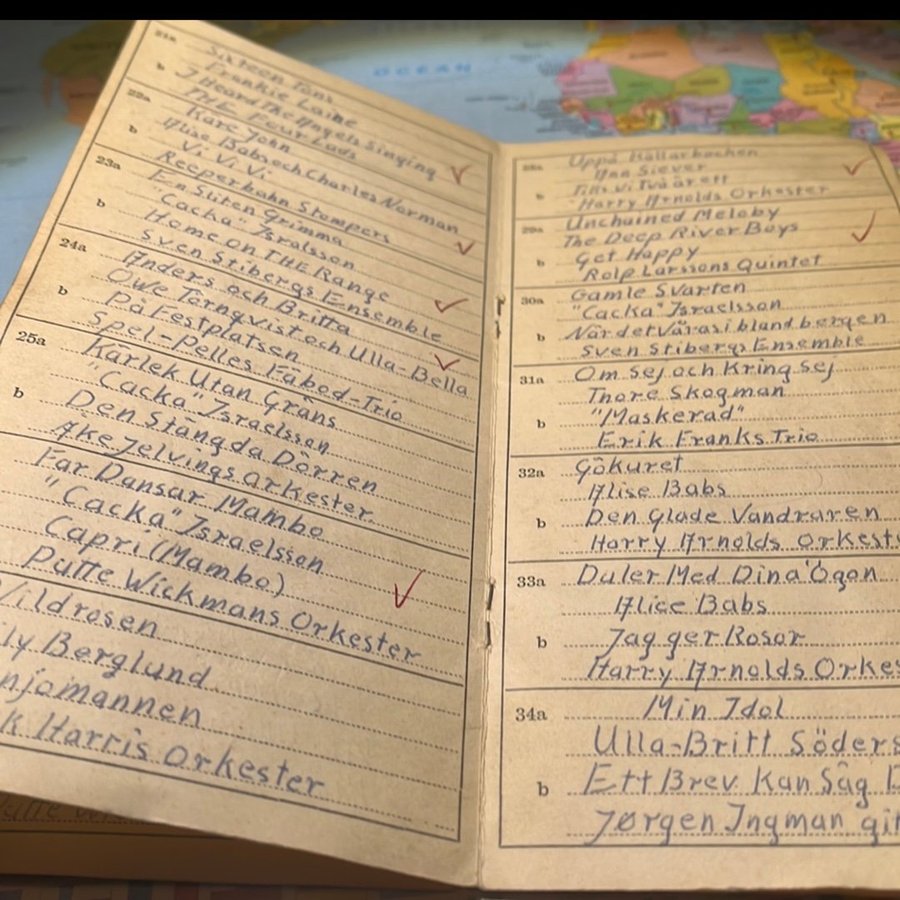 OCEAN
21a Sixteen Tons
Frankie Laine
b I Heard The Angels Singing
THE Four Lads
22a Kära John
Alise Babs och Charles Norman
b Vi Vi Vi
Reeperbahn Stompers
23a En Sliten Grimma
"Cacka" Israelsson
b Home on THE Range
Sven Stibergs Ensemble
24a Anders och Britta
Owe Törnqvist och Ulla-Bella
b På Festplatsen
Spel-Pelles Fäbod-Trio
25a Kärlek Utan Gräns
"Cacka" Israelsson
b Den Stängda Dörren
Åke Jelvings orkester
Far Dansar Mambo
"Cacka" Israelsson
Capri (Mambo)
Putte Wickmans Orkester
Vildrosen
ly Berglund
njomannen
k Harris Orkester
28a Uppå Källarbacken
Siever
b Tills Vi Två är ett
Harry Arnolds Orkester
29a Unchained Meloby
The Deep River Boys
b Get Happy
Rolp Larssons Quintet
30a Gamle Svarten
"Cacka" Israelsson
b När det våras ibland bergen
Sven Stibergs Ensemble
31a Om Sej och Kring Sej
Thore Skogman
b "Maskerad"
Erik Franks Trio
32a Gökuret
Alise Babs
b Den Glade Vandraren
Harry Arnolds Orkest
33a Duler Med Dina Ögon
Alice Babs
b Jag ger Rosor
Harry Arnolds Orkes
34a Min Idol
Ulla-Britt Söders
b Ett Brev Kan Säg D
Jørgen Ingman git